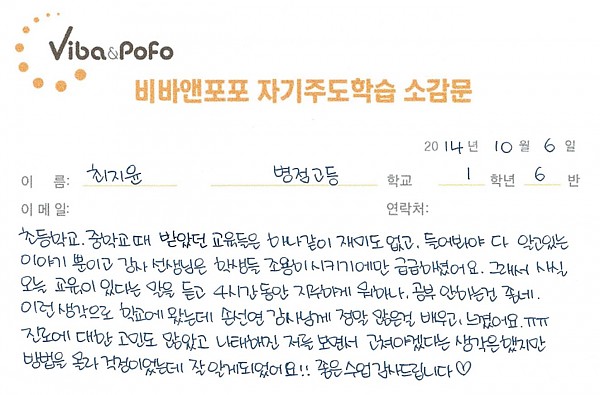 Viba&PoFo
비바앤포포 자기주도학습 소감문
2014년 10월 6일
이 름: 최지윤 병점고등 학교 1 학년 6 반
이메일: 연락처:
초등학교. 중학교 때 받았던 교육들은 하나같이 재미도 없고, 들어봐야 다 알고있는
이야기 뿐이고 강사 선생님은 학생들 조용히시키기에만 급급하셨어요. 그래서 사실
오늘 교육이 있다는 말을 듣고 4시간동안 지루하게 뭐하나. 공부 안하는건 좋네.
이런 생각으로 학교에 왔는데 손선연 강사님께 정말 많은걸 배우고, 느꼈어요.ㅠㅠ
진로에 대한 고민도 많았고 나태해진 저를 보면서 고쳐야겠다는 생각은 했지만
방법을 몰라 걱정이었는데 잘 알게되었어요!! 좋은수업 감사드립니다♡